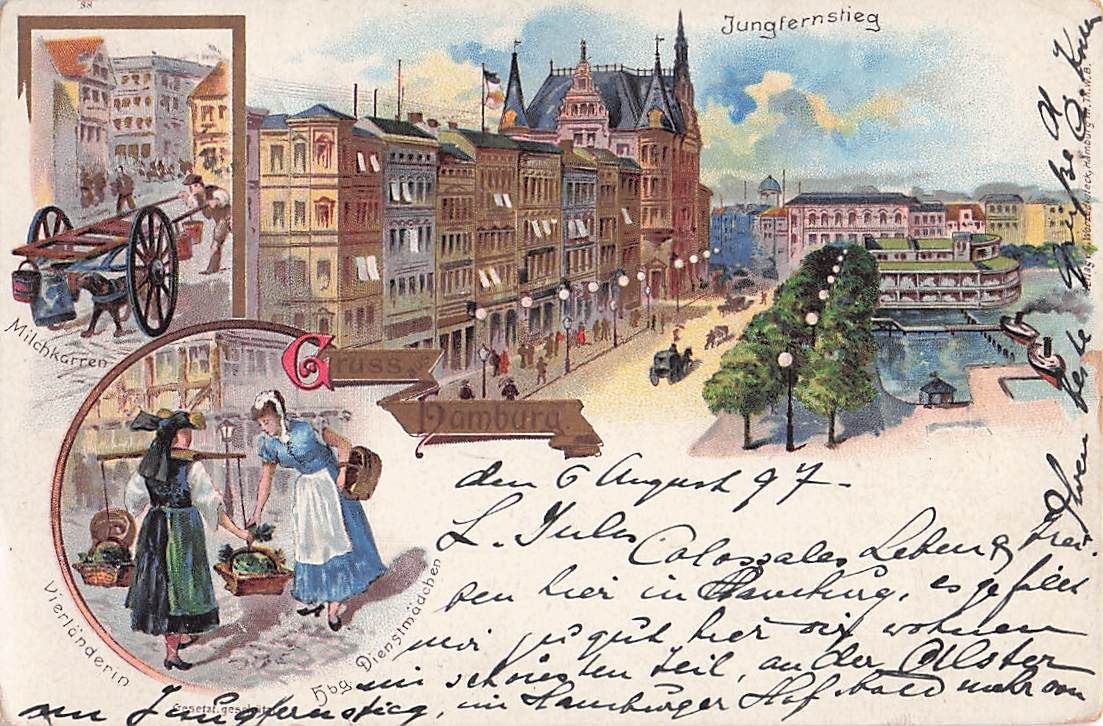 38
Jungfernstieg
Milchkarren
Gruss aus
Hamburg.
Vierländerin
Hbg. Dienstmädchen
Gesetzl. geschützt
den 6 August 97.
L. Jules Colossales Leben & Trei-
ben hier in Hamburg, es gefällt
mir sehr gut hier wir wohnen
im schönsten Teil, an der Alster
am Jungfernstieg, im Hamburger Hof bald mehr von
Ihnen beste Grüße